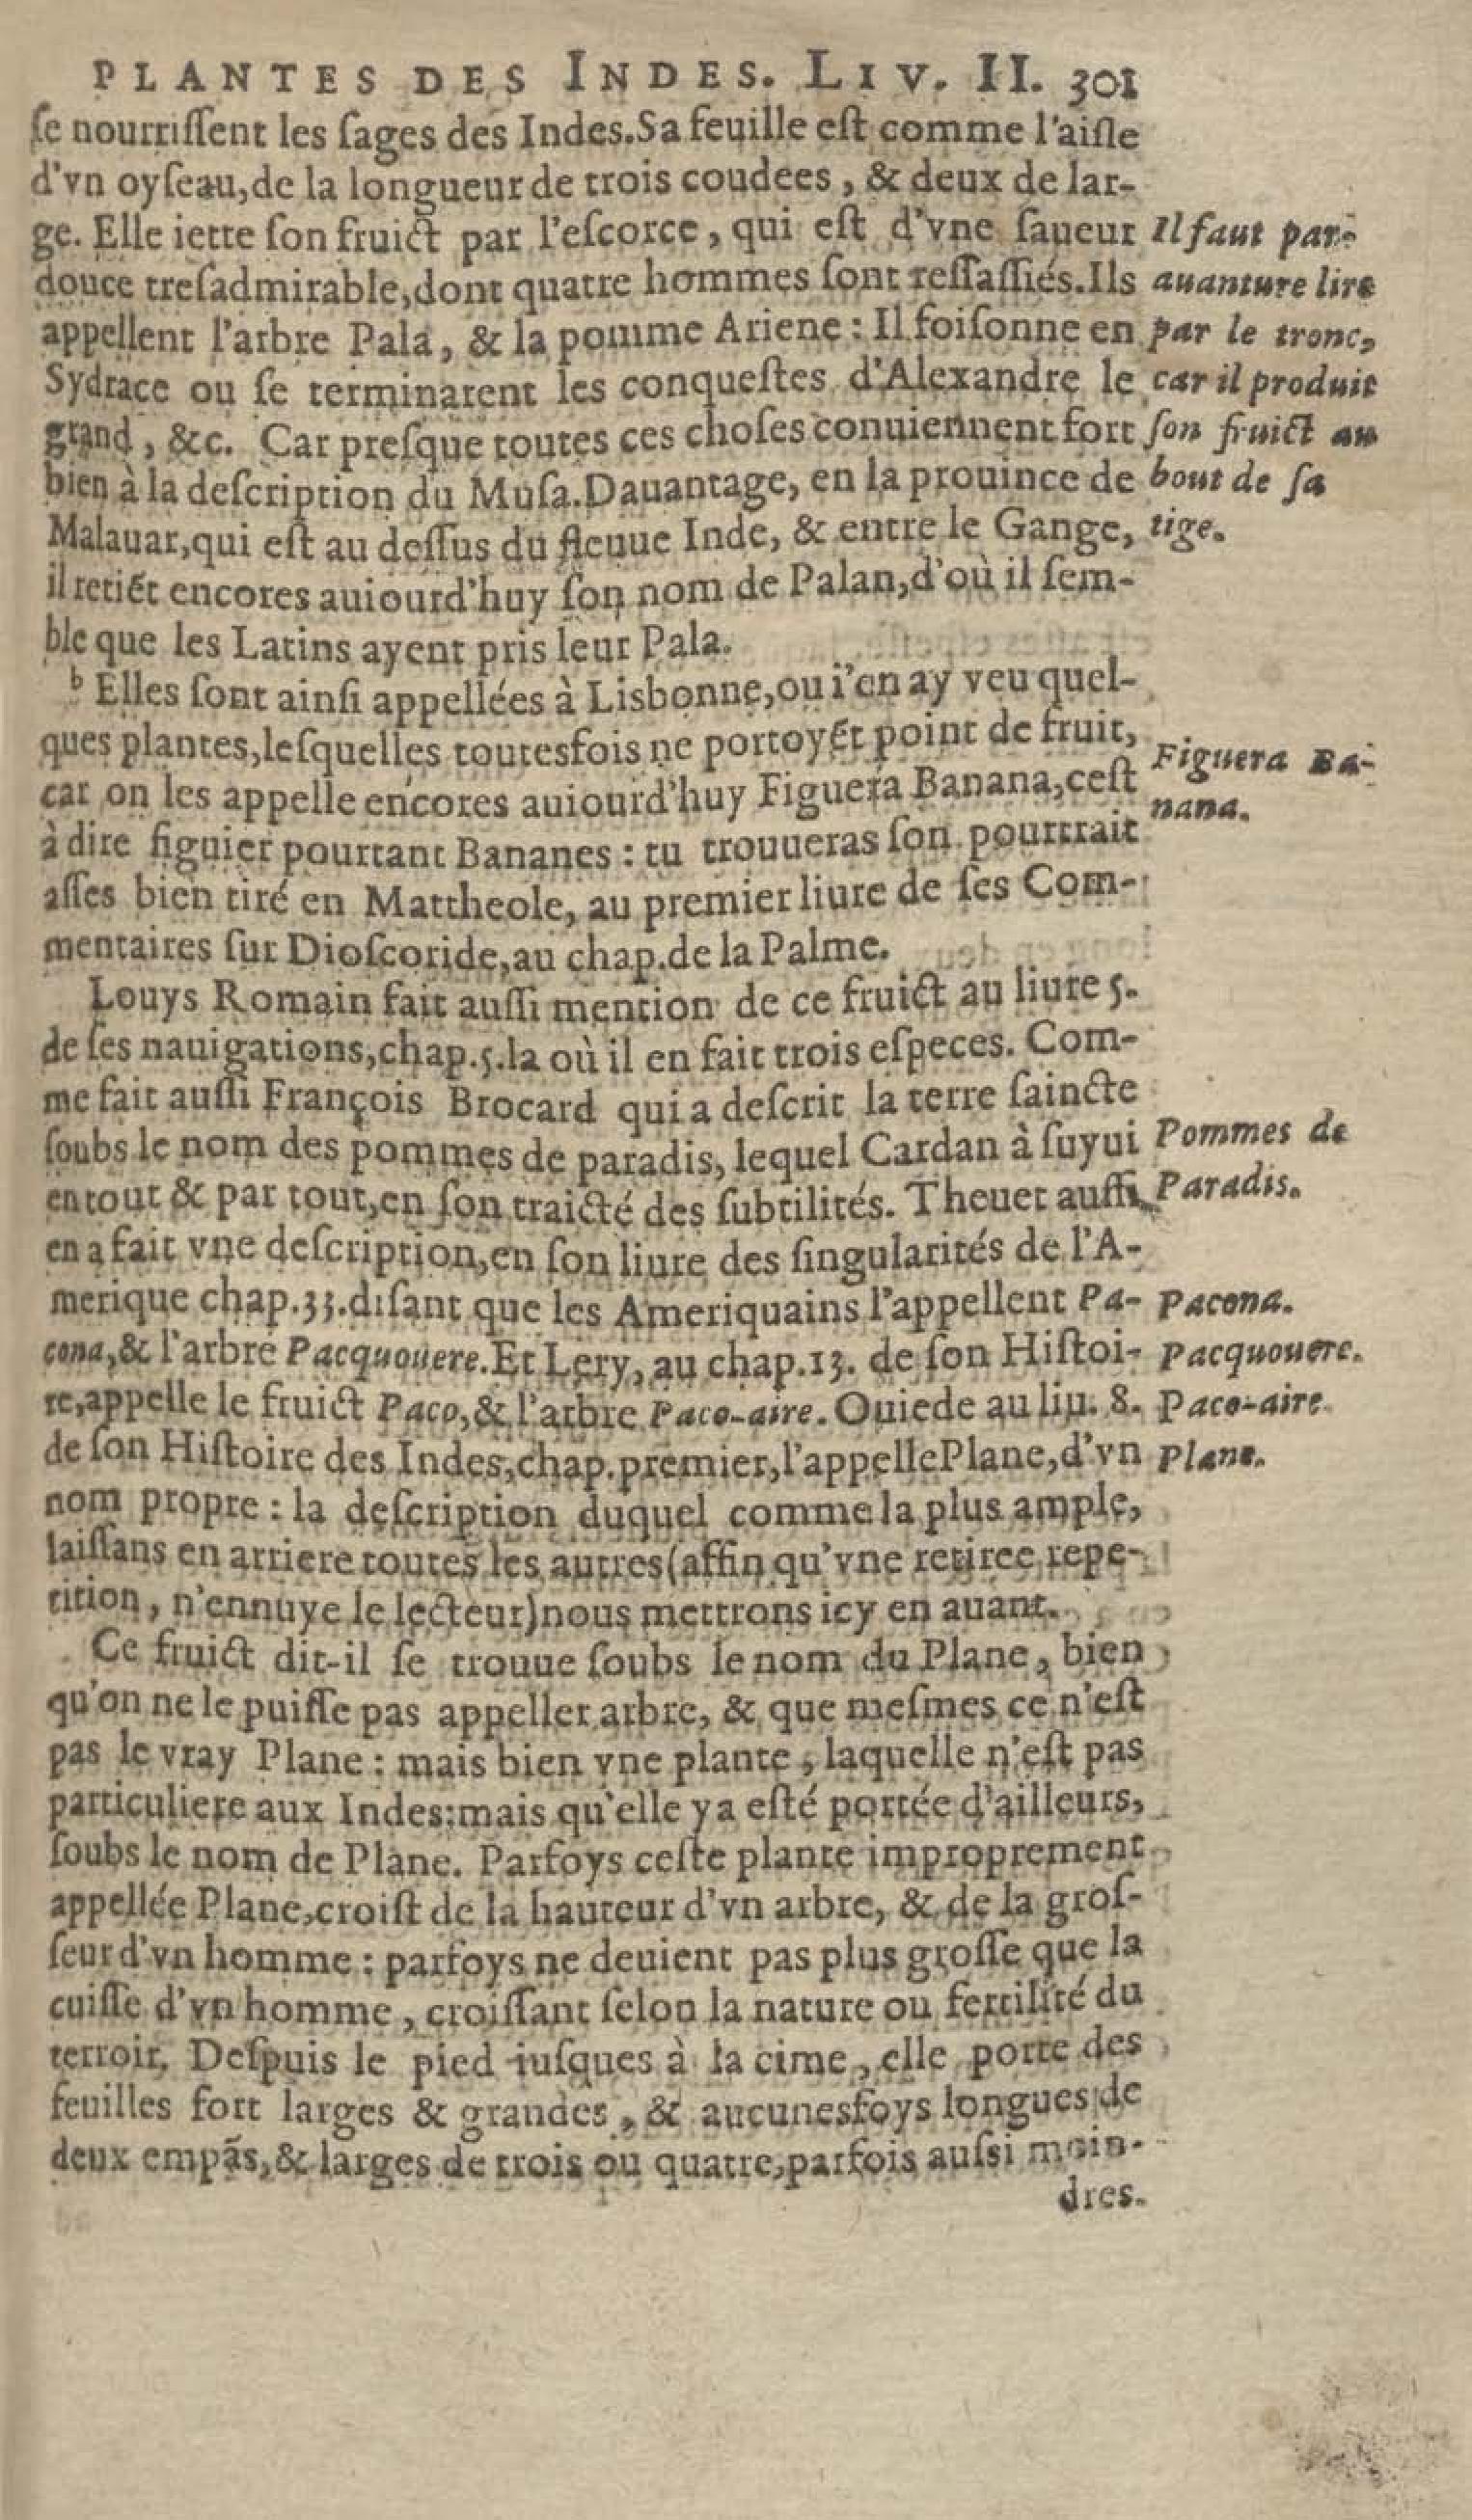 PLANTES DES INDES. LIV. II. 301
ſe nourriſſent les ſages des Indes. Sa feuille eſt comme l'aiſle
d'vn oyſeau, de la longueur de trois coudees, & deux de lar-
ge. Elle iette ſon fruict par l'eſcorce, qui eſt d'vne ſaueur
douce treſadmirable, dont quatre hommes ſont reſſaſſiés. Ils
appellent l'arbre Pala, & la pomme Ariene: Il foiſonne en
Sydrace ou ſe terminarent les conqueſtes d'Alexandre le
grand, &c. Car preſque toutes ces choſes conuiennent fort
bien à la deſcription du Muſa. Dauantage, en la prouince de
Malauar, qui eſt au deſſus du fleuue Inde, & entre le Gange,
il retiẽt encores auiourd'huy ſon nom de Palan, d'où il ſem-
ble que les Latins ayent pris leur Pala.
Il faut par-
auanture lire
par le tronc,
car il produit
ſon fruict au
bout de ſa
tige.
b Elles ſont ainſi appellées à Lisbonne, ou i'en ay veu quel-
ques plantes, leſquelles toutesfois ne portoyẽt point de fruit,
car on les appelle encores auiourd'huy Figuera Banana, ceſt
à dire figuier pourtant Bananes: tu trouueras ſon pourtrait
aſſes bien tiré en Mattheole, au premier liure de ſes Com-
mentaires ſur Dioſcoride, au chap. de la Palme.
Figuera Ba-
nana.
Louys Romain fait auſſi mention de ce fruict au liure 5.
de ſes nauigations, chap. 5. la où il en fait trois eſpeces. Com-
me fait auſſi François Brocard qui a deſcrit la terre ſaincte
ſoubs le nom des pommes de paradis, lequel Cardan à ſuyui
en tout & par tout, en ſon traicté des ſubtilités. Theuet auſſi
en a fait vne deſcription, en ſon liure des ſingularités de l'A-
merique chap. 33. diſant que les Ameriquains l'appellent Pa-
cona, & l'arbre Pacquouere. Et Lery, au chap. 13. de ſon Hiſtoi-
re, appelle le fruict Paco, & l'arbre Paco-aire. Ouiede au liu. 8.
de ſon Hiſtoire des Indes, chap. premier, l'appelle Plane, d'vn
nom propre: la deſcription duquel comme la plus ample,
laiſſans en arriere toutes les autres (affin qu'vne retiree repe-
tition, n'ennuye le lecteur) nous mettrons icy en auant.
Pommes de
Paradis.
Pacona.
Pacquouere.
Paco-aire.
Plane.
Ce fruict dit-il ſe trouue ſoubs le nom du Plane, bien
qu'on ne le puiſſe pas appeller arbre, & que meſmes ce n'eſt
pas le vray Plane: mais bien vne plante, laquelle n'eſt pas
particuliere aux Indes: mais qu'elle y a eſté portée d'ailleurs,
ſoubs le nom de Plane. Parfoys ceſte plante improprement
appellée Plane, croiſt de la hauteur d'vn arbre, & de la groſ-
ſeur d'vn homme: parfoys ne deuient pas plus groſſe que la
cuiſſe d'vn homme, croiſſant ſelon la nature ou fertilité du
terroir. Deſpuis le pied iuſques à la cime, elle porte des
feuilles fort larges & grandes, & aucunesfoys longues de
deux empãs, & larges de trois ou quatre, parfois auſsi moin-
dres.